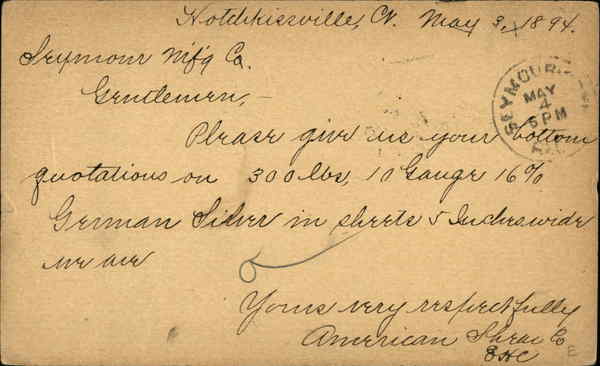 Hotchkissville, Ct. May 3, 1894.
Seymour Mfg Co.
Gentlemen,—
Please give us your bottom
quotations on 300 lbs, 10 Gauge 16%
German Silver in sheets 5 Inches wide
we are
Yours very respectfully
American Shear Co
EHC
SEYMOUR
MAY
4
5 PM